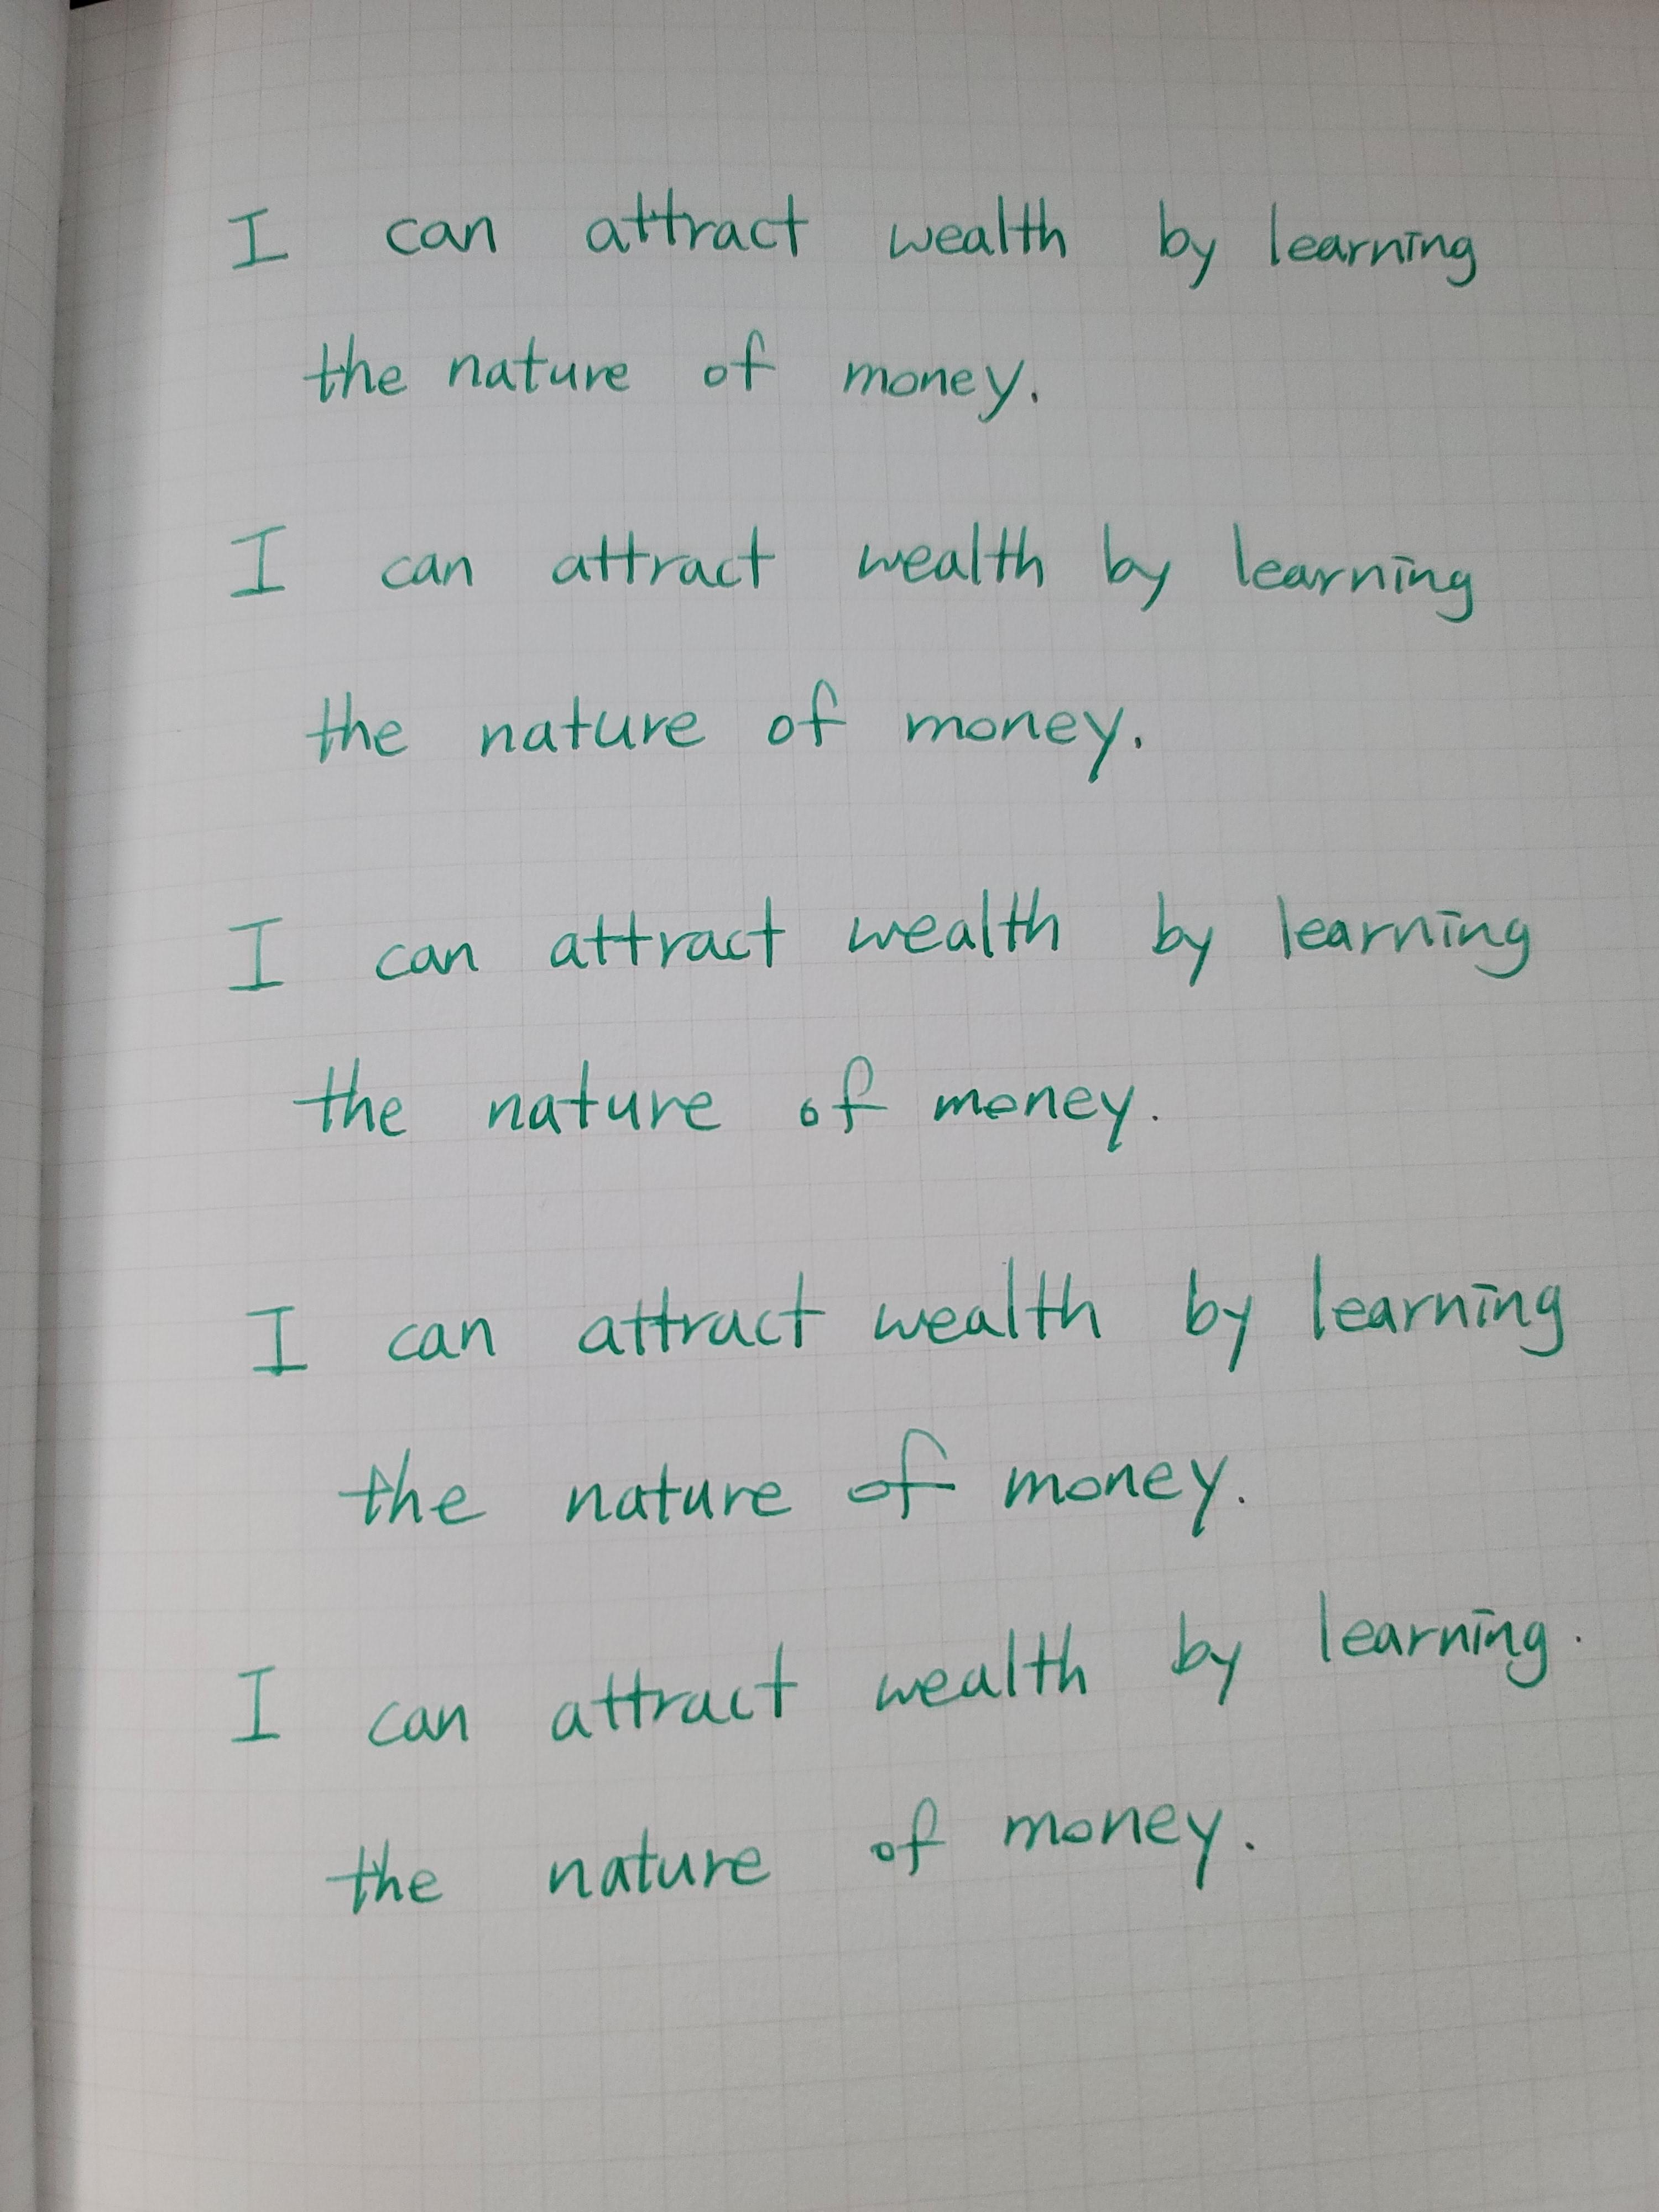 I can attract wealth by learning
the nature of money.
I can attract wealth by learning
the nature of money.
I can attract wealth by learning
the nature of money.
I can attract wealth by learning
the nature of money.
I can attract wealth by learning.
the nature of money.